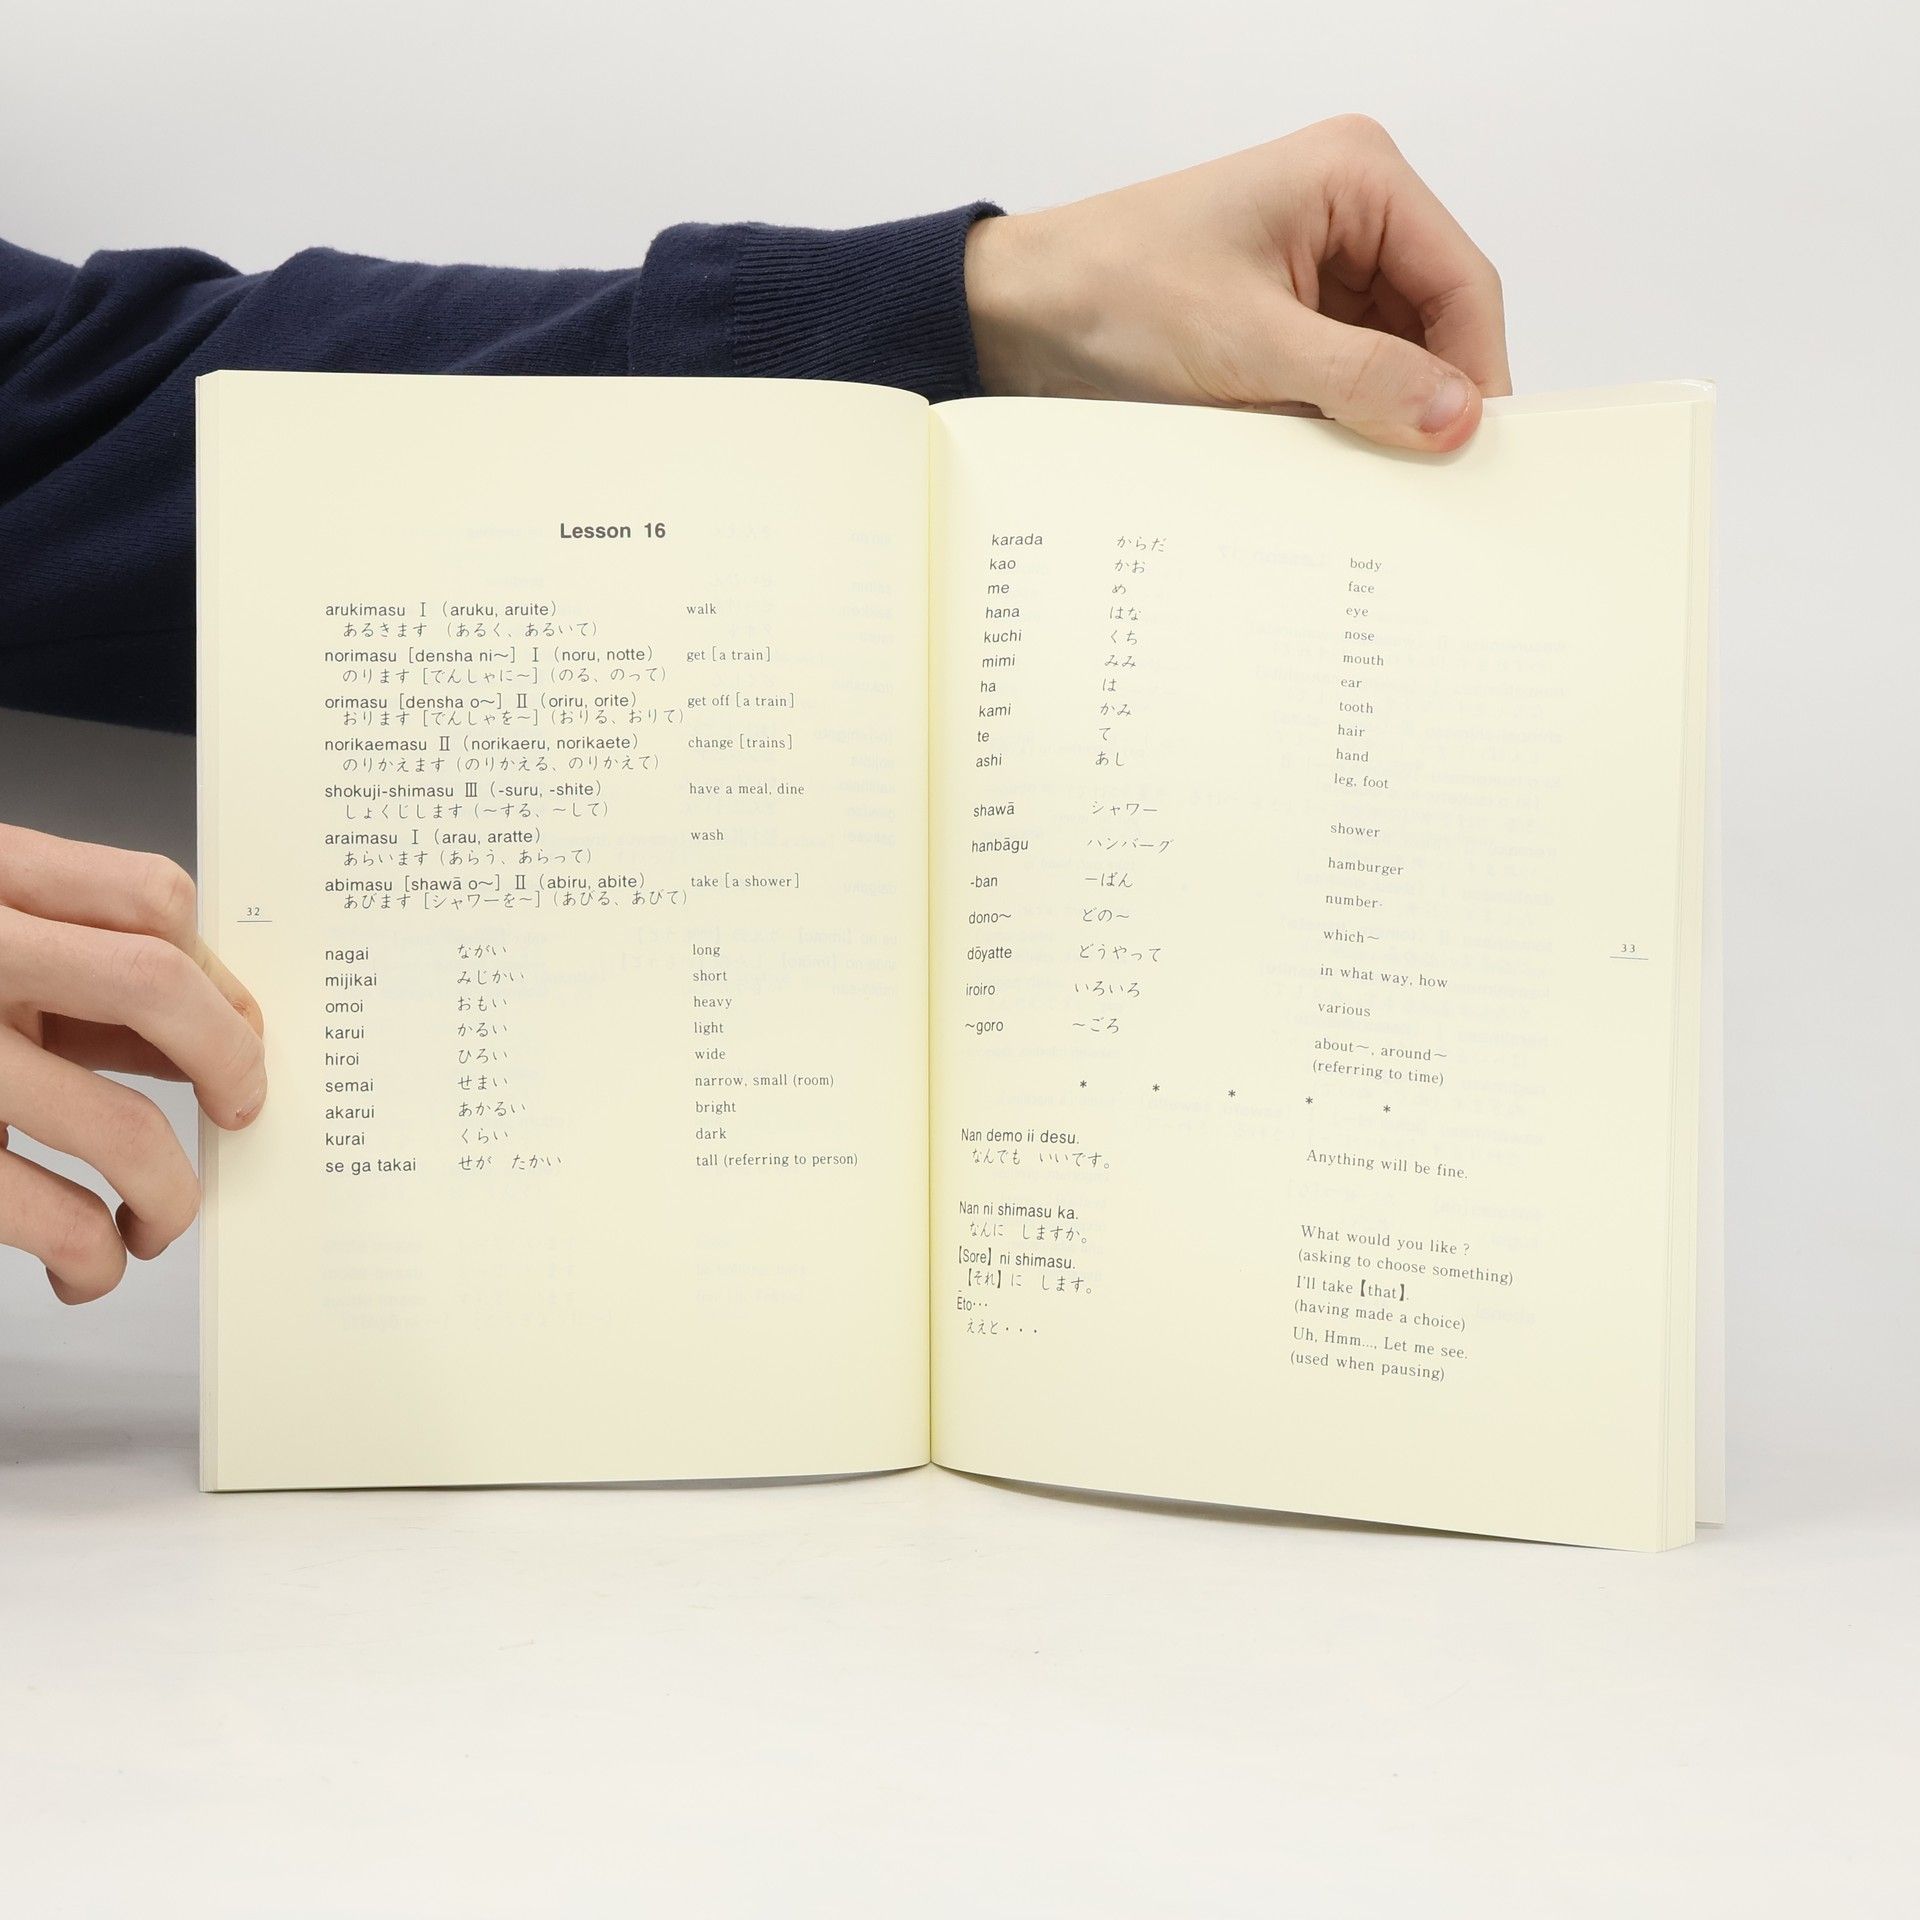 Lesson 16
arukimasu Ⅰ (aruku, aruite) walk
あるきます (あるく、あるいて)
norimasu [densha ni〜] Ⅰ (noru, notte) get [a train]
のります [でんしゃに〜] (のる、のって)
orimasu [densha o〜] Ⅱ (oriru, orite) get off [a train]
おります [でんしゃを〜] (おりる、おりて)
norikaemasu Ⅱ (norikaeru, norikaete) change [trains]
のりかえます (のりかえる、のりかえて)
shokuji-shimasu Ⅲ (-suru, -shite) have a meal, dine
しょくじします (〜する、〜して)
araimasu Ⅰ (arau, aratte) wash
あらいます (あらう、あらって)
abimasu [shawā o〜] Ⅱ (abiru, abite) take [a shower]
あびます [シャワーを〜] (あびる、あびて)
32
nagai ながい long
mijikai みじかい short
omoi おもい heavy
karui かるい light
hiroi ひろい wide
semai せまい narrow, small (room)
akarui あかるい bright
kurai くらい dark
se ga takai せが たかい tall (referring to person)
karada からだ body
kao かお face
me め eye
hana はな nose
kuchi くち mouth
mimi みみ ear
ha は tooth
kami かみ hair
te て hand
ashi あし leg, foot
shawā シャワー shower
hanbāgu ハンバーグ hamburger
-ban ーばん number·
dono〜 どの〜 which〜
dōyatte どうやって in what way, how
iroiro いろいろ various
〜goro 〜ごろ about〜, around〜
(referring to time)
33
* * * * *
Nan demo ii desu. Anything will be fine.
なんでも いいです。
Nan ni shimasu ka. What would you like ?
なんに しますか。 (asking to choose something)
【Sore】 ni shimasu. I'll take 【that】.
【それ】に します。 (having made a choice)
Ēto··· Uh, Hmm..., Let me see.
ええと・・・ (used when pausing)